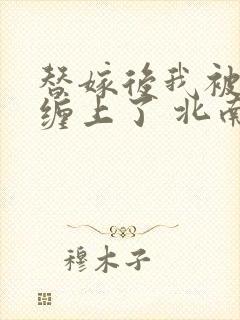 替嫁後我被
缠上了 北南
穆木子